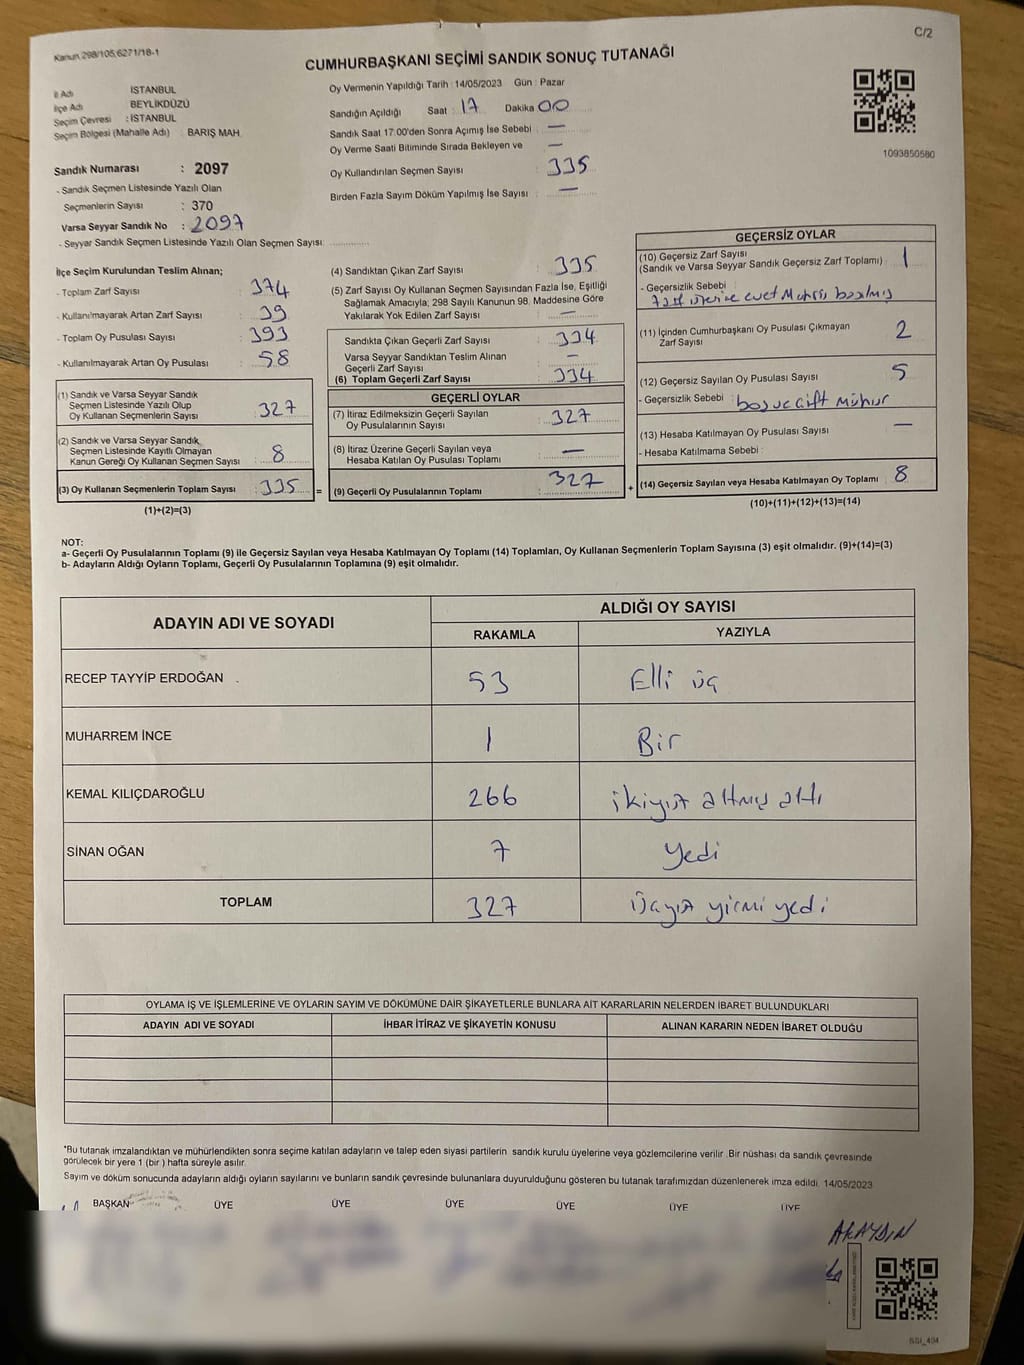 Kanun 298/105,6271/18-1
C/2
CUMHURBAŞKANI SEÇİMİ SANDIK SONUÇ TUTANAĞI
İl Adı İSTANBUL
İlçe Adı BEYLİKDÜZÜ
Seçim Çevresi : İSTANBUL
Seçim Bölgesi (Mahalle Adı) : BARIŞ MAH.
Sandık Numarası : 2097
- Sandık Seçmen Listesinde Yazılı Olan
Seçmenlerin Sayısı : 370
Varsa Seyyar Sandık No : 2097
- Seyyar Sandık Seçmen Listesinde Yazılı Olan Seçmen Sayısı:
Oy Vermenin Yapıldığı Tarih : 14/05/2023 Gün : Pazar
Sandığın Açıldığı Saat : 17 Dakika 00
Sandık Saat 17:00'den Sonra Açımış İse Sebebi : —
Oy Verme Saati Bitiminde Sırada Bekleyen ve —
Oy Kullandırılan Seçmen Sayısı : 335
Birden Fazla Sayım Döküm Yapılmış İse Sayısı : —
1093850580
İlçe Seçim Kurulundan Teslim Alınan;
- Toplam Zarf Sayısı : 374
- Kullanılmayarak Artan Zarf Sayısı : 39
- Toplam Oy Pusulası Sayısı : 393
- Kullanılmayarak Artan Oy Pusulası : 58
(1) Sandık ve Varsa Seyyar Sandık
Seçmen Listesinde Yazılı Olup
Oy Kullanan Seçmenlerin Sayısı : 327
(2) Sandık ve Varsa Seyyar Sandık
Seçmen Listesinde Kayıtlı Olmayan
Kanun Gereği Oy Kullanan Seçmen Sayısı : 8
(3) Oy Kullanan Seçmenlerin Toplam Sayısı : 335 =
(1)+(2)=(3)
(4) Sandıktan Çıkan Zarf Sayısı : 335
(5) Zarf Sayısı Oy Kullanan Seçmen Sayısından Fazla İse, Eşitliği
Sağlamak Amacıyla; 298 Sayılı Kanunun 98. Maddesine Göre
Yakılarak Yok Edilen Zarf Sayısı : —
Sandıkta Çıkan Geçerli Zarf Sayısı : 334
Varsa Seyyar Sandıktan Teslim Alınan
Geçerli Zarf Sayısı —
(6) Toplam Geçerli Zarf Sayısı : 334
GEÇERLİ OYLAR
(7) İtiraz Edilmeksizin Geçerli Sayılan
Oy Pusulalarının Sayısı : 327
(8) İtiraz Üzerine Geçerli Sayılan veya
Hesaba Katılan Oy Pusulası Toplamı : —
(9) Geçerli Oy Pusulalarının Toplamı : 327 +
GEÇERSİZ OYLAR
(10) Geçersiz Zarf Sayısı
(Sandık ve Varsa Seyyar Sandık Geçersiz Zarf Toplamı) : 1
- Geçersizlik Sebebi :
Zarf üzerine evet Mührü basılmış
(11) İçinden Cumhurbaşkanı Oy Pusulası Çıkmayan
Zarf Sayısı : 2
(12) Geçersiz Sayılan Oy Pusulası Sayısı : 5
- Geçersizlik Sebebi : boş ve çift mühür
(13) Hesaba Katılmayan Oy Pusulası Sayısı : —
- Hesaba Katılmama Sebebi :
(14) Geçersiz Sayılan veya Hesaba Katılmayan Oy Toplamı : 8
(10)+(11)+(12)+(13)=(14)
NOT:
a- Geçerli Oy Pusulalarının Toplamı (9) ile Geçersiz Sayılan veya Hesaba Katılmayan Oy Toplamı (14) Toplamları, Oy Kullanan Seçmenlerin Toplam Sayısına (3) eşit olmalıdır. (9)+(14)=(3)
b- Adayların Aldığı Oyların Toplamı, Geçerli Oy Pusulalarının Toplamına (9) eşit olmalıdır.
ADAYIN ADI VE SOYADI ALDIĞI OY SAYISI
RAKAMLA YAZIYLA
RECEP TAYYİP ERDOĞAN 53 Elli üç
MUHARREM İNCE 1 Bir
KEMAL KILIÇDAROĞLU 266 ikiyüz altmış altı
SİNAN OĞAN 7 Yedi
TOPLAM 327 Üçyüz yirmi yedi
OYLAMA İŞ VE İŞLEMLERİNE VE OYLARIN SAYIM VE DÖKÜMÜNE DAİR ŞİKAYETLERLE BUNLARA AİT KARARLARIN NELERDEN İBARET BULUNDUKLARI
ADAYIN ADI VE SOYADI İHBAR İTİRAZ VE ŞİKAYETİN KONUSU ALINAN KARARIN NEDEN İBARET OLDUĞU
*Bu tutanak imzalandıktan ve mühürlendikten sonra seçime katılan adayların ve talep eden siyasi partilerin sandık kurulu üyelerine veya gözlemcilerine verilir. Bir nüshası da sandık çevresinde
görülecek bir yere 1 (bir ) hafta süreyle asılır.
Sayım ve döküm sonucunda adayların aldığı oyların sayılarını ve bunların sandık çevresinde bulunanlara duyurulduğunu gösteren bu tutanak tarafımızdan düzenlenerek imza edildi. 14/05/2023
BAŞKAN ÜYE ÜYE ÜYE ÜYE ÜYE ÜYE
AKAYDIN